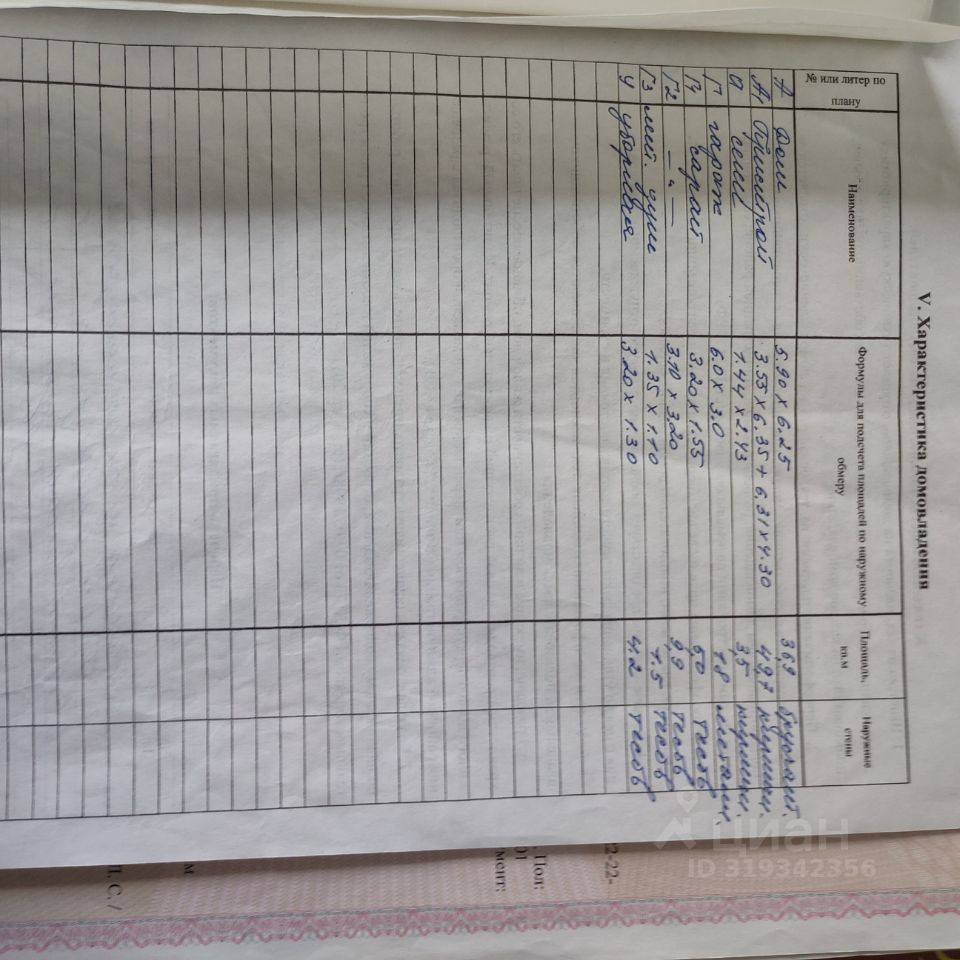 V. Характеристика домовладения
№ или литер по плану Наименование Формулы для подсчета площадей по наружному обмеру Площадь, кв.м Наружные стены
А Дом 5.90 х 6.25 36,9 брусчат.
А₁ Пристрой 3.55 х 6.35 + 6,31 х 4.30 49,7 кирпичн.
а сени 1.44 х 2.43 3,5 кирпичн.
Г гараж 6.0 х 3.0 18 металл.
Г1 сарай 3.20 х 1.55 5,0 тесов
Г2 —„— 3.10 х 3,20 9,9 тесов
Г3 лет. душ 1.35 х 1.10 1.5 тесов
У уборная 3.20 х 1.30 4,2 тесов
2-22-
Пол:
01
мент:
м
П. С. /
циан
ID 319342356